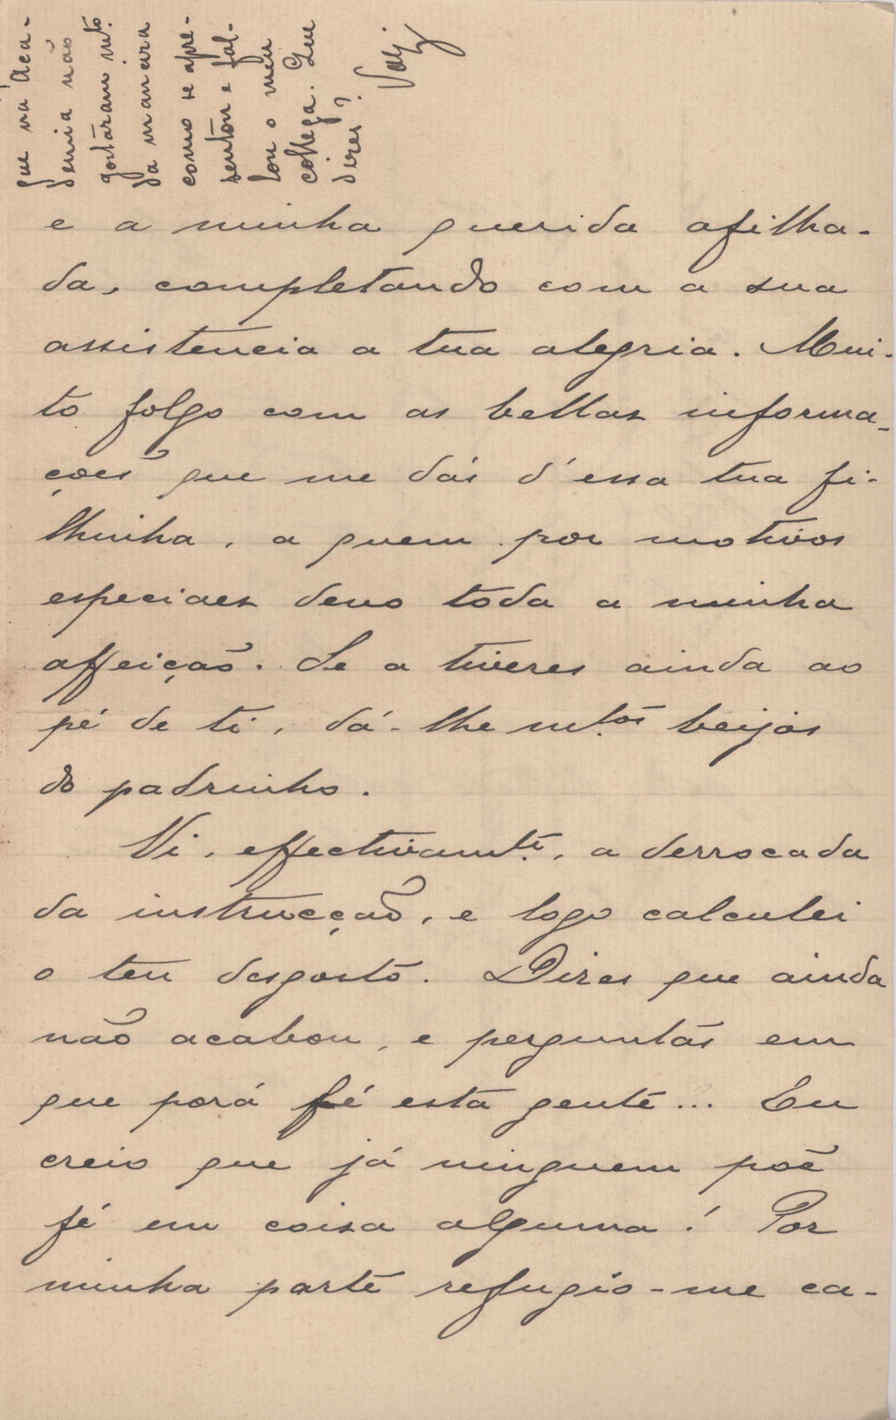 que na Aca-
demia não
gostaram mto
da maneira
como se apre-
sentou e fal-
lou o meu
collega. Que
dizes?
e a minha querida afilha-
da, completando com a sua
assistencia a tua alegria. Mui-
to folgo com as bellas informa-
ções que me dás d'essa tua fi-
lhinha, a quem por motivos
especiaes devo toda a minha
affeição. Se a tiveres ainda ao
pé de ti, dá-lhe mtos beijos
do padrinho.
Vi, effectivamte, a derrocada
da instrucção, e logo calculei
o teu desgosto. Dizes que ainda
não acabou, e perguntas em
que porá fé esta gente... Eu
creio que já ninguem põe
fé em coisa alguma! Por
minha parte refugio-me ca-